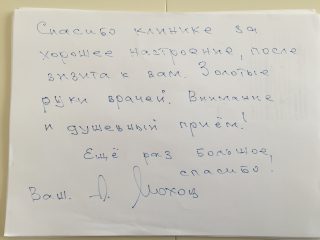 Спасибо клинике за
хорошее настроение, после
визита к вам. Золотые
руки врачей. Внимание
и душевный приём!
Ещё раз большое,
спасибо.
Ваш.